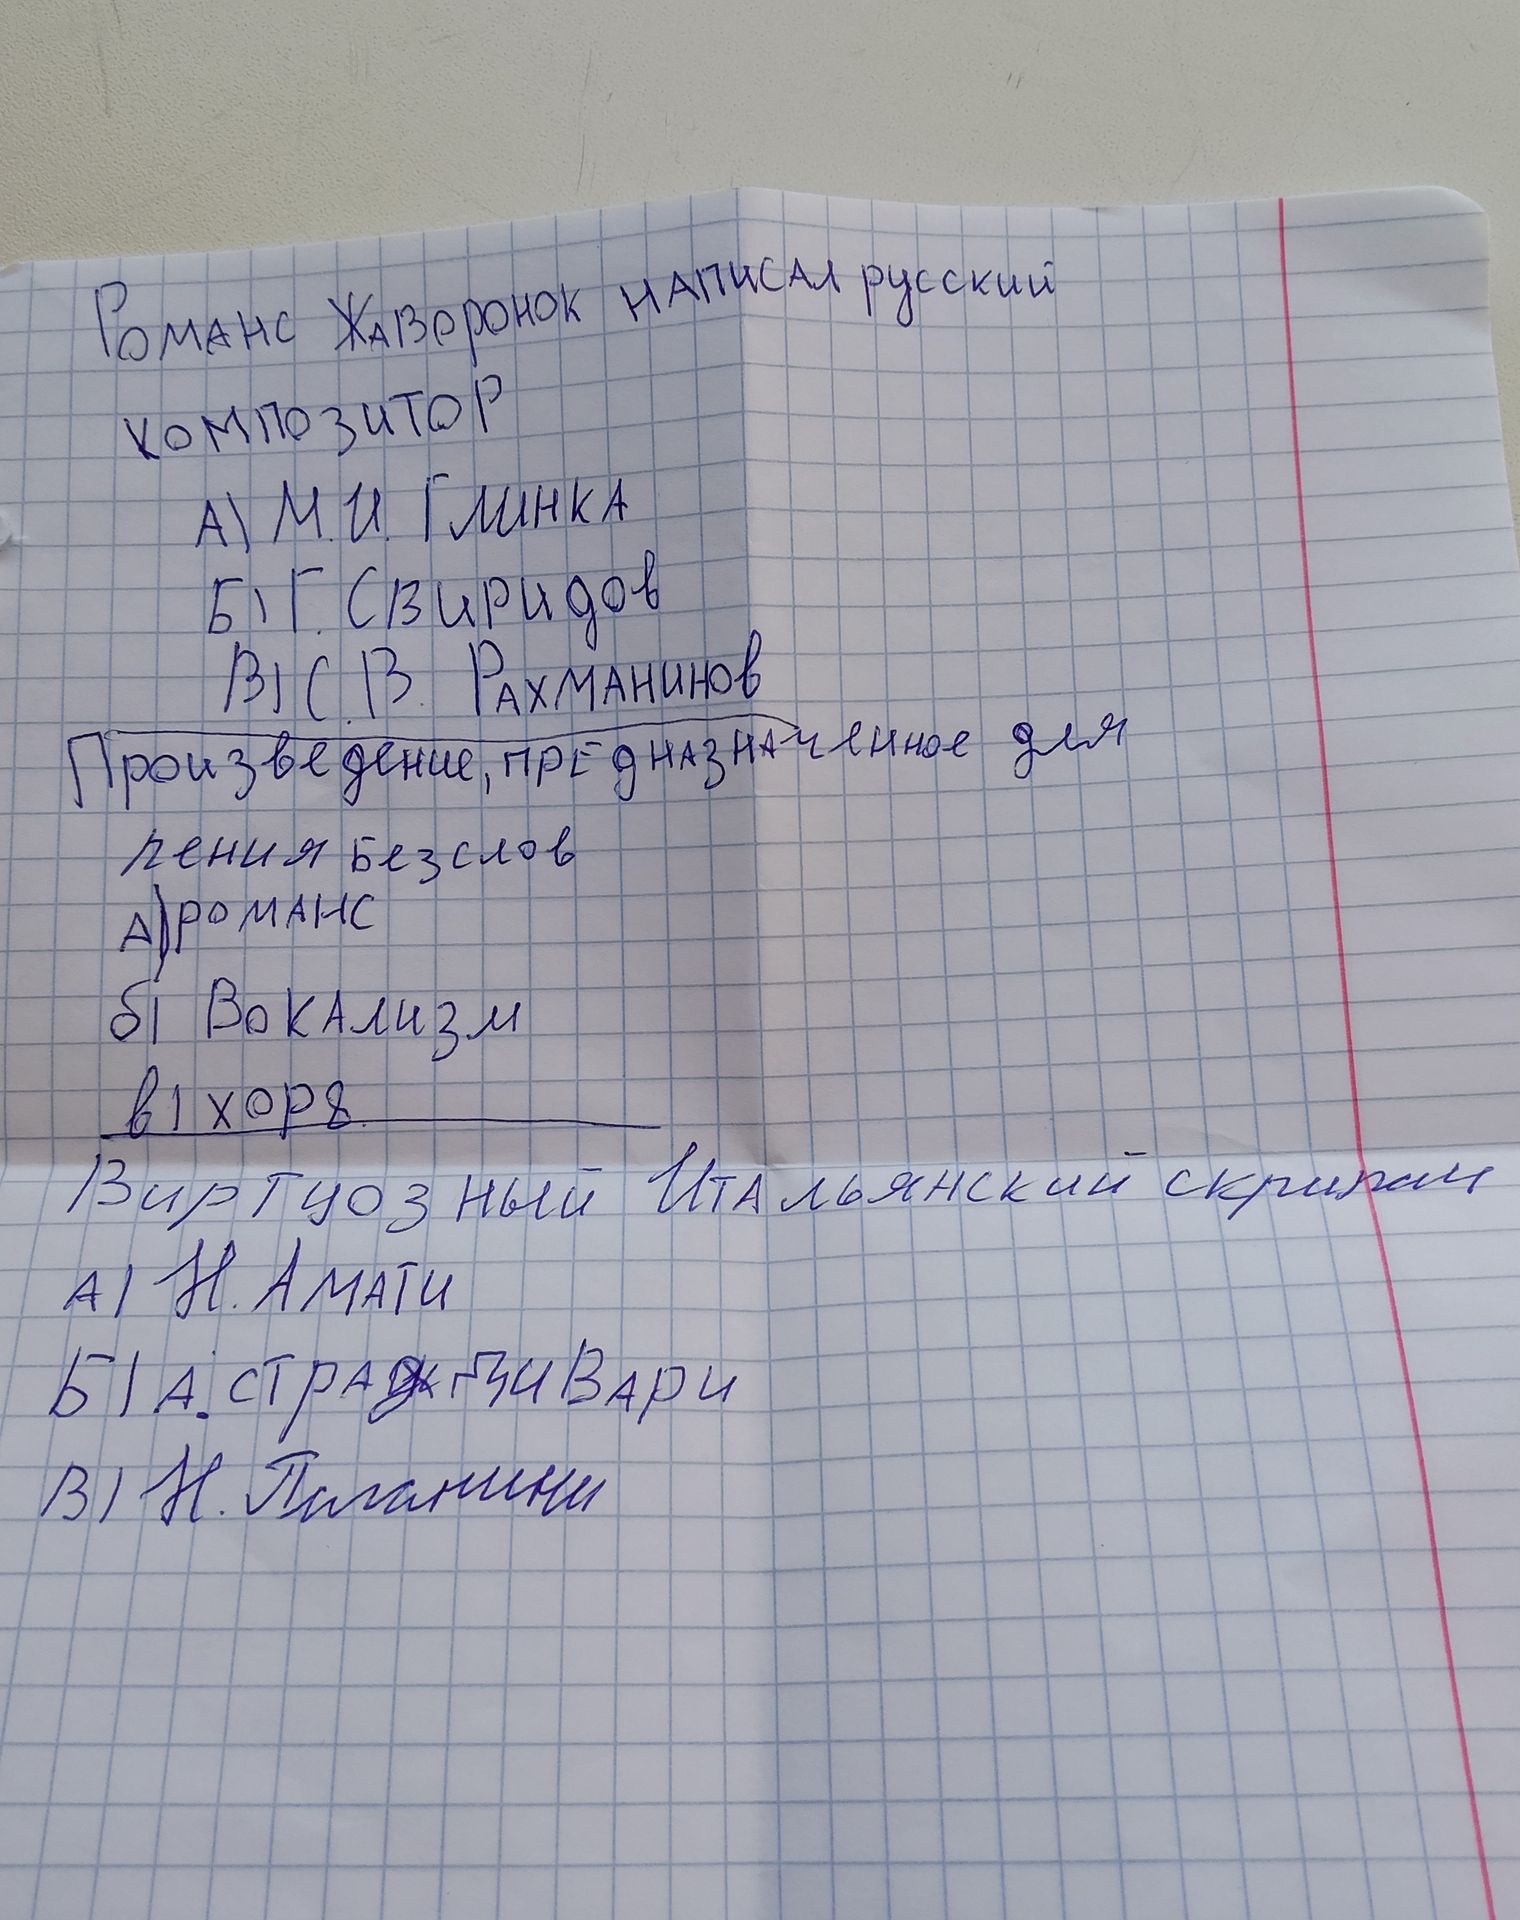 Романс Жаворонок написал русский
композитор
А) М.И. Глинка
Б) Г. Свиридов
В) С.В. Рахманинов
Произведение, предназначенное для
пения без слов
А) романс
б) Вокализм
в) хорв
Виртуозный Итальянский скрипач
А) Н. Амати
Б) А. страдгцивари
В) Н. Паганини